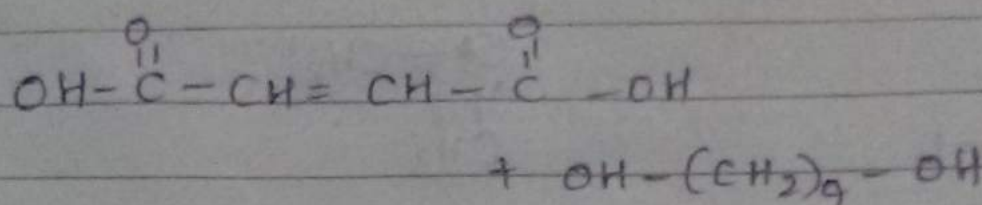 O O
OH-C-CH=CH-C-OH
+ OH-(CH2)9-OH